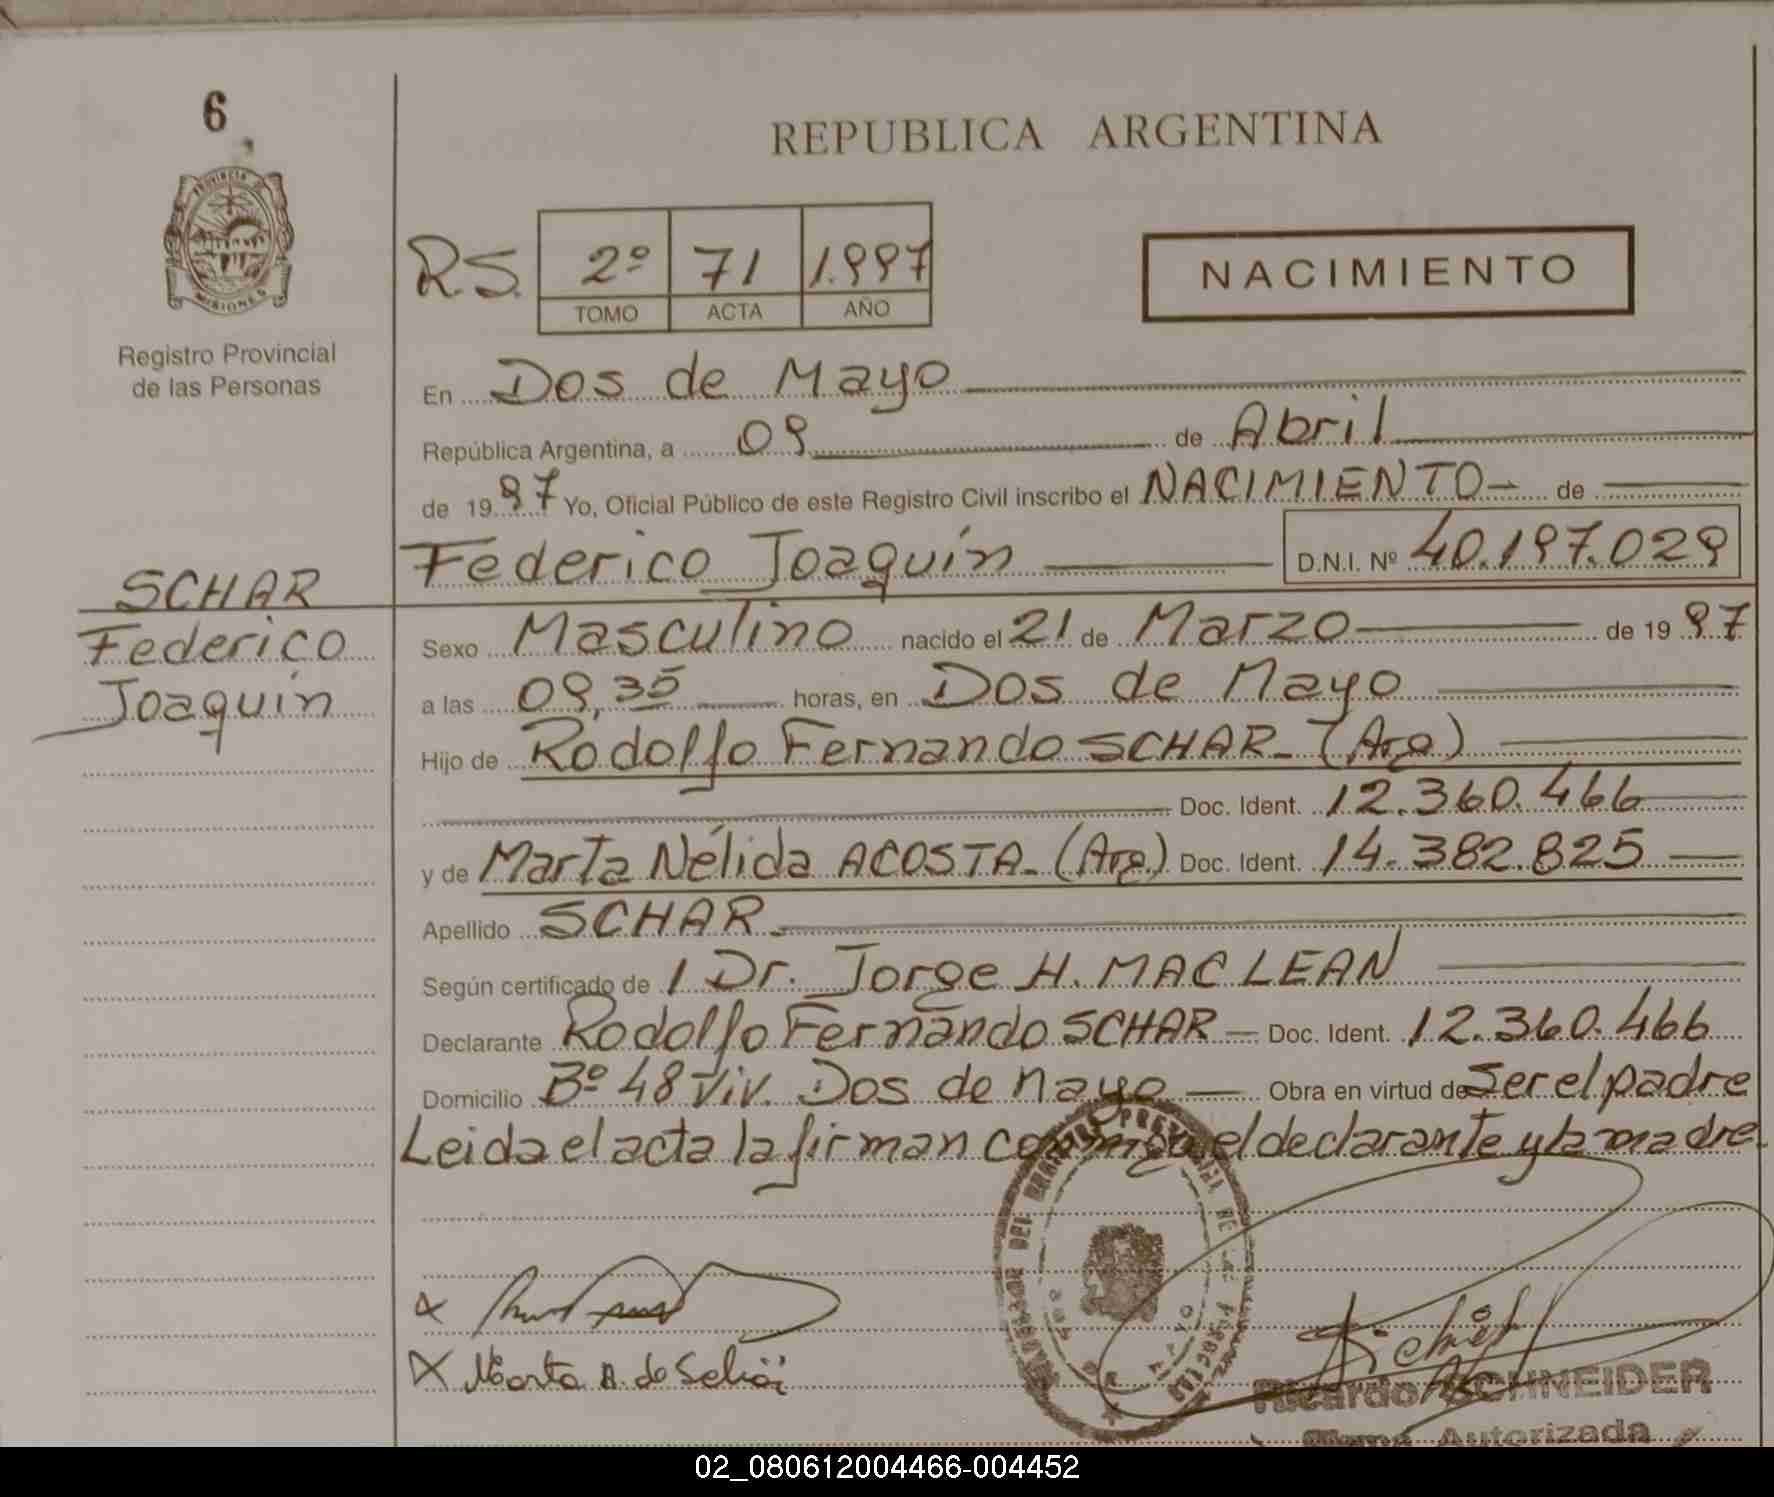 6
PROVINCIA DE
MISIONES
Registro Provincial
de las Personas
SCHAR
Federico
Joaquín
REPUBLICA ARGENTINA
R.S. 2º 71 1.997
TOMO ACTA AÑO
NACIMIENTO
En Dos de Mayo
República Argentina, a 09 de Abril
de 1997 Yo, Oficial Público de este Registro Civil inscribo el NACIMIENTO de
Federico Joaquín D.N.I. Nº 40.197.029
Sexo Masculino nacido el 21 de Marzo de 1997
a las 09,35 horas, en Dos de Mayo
Hijo de Rodolfo Fernando SCHAR (Arg)
Doc. Ident. 12.360.466
y de Marta Nélida ACOSTA (Arg) Doc. Ident. 14.382.825
Apellido SCHAR
Según certificado de 1 Dr. Jorge H. MAC LEAN
Declarante Rodolfo Fernando SCHAR Doc. Ident. 12.360.466
Domicilio Bº 48 Viv. Dos de Mayo Obra en virtud de Ser el padre
Leida el acta la firman conmigo el declarante y la madre.
Marta A. de
Ricardo SCHNEIDER
Autorizada
02_080612004466-004452